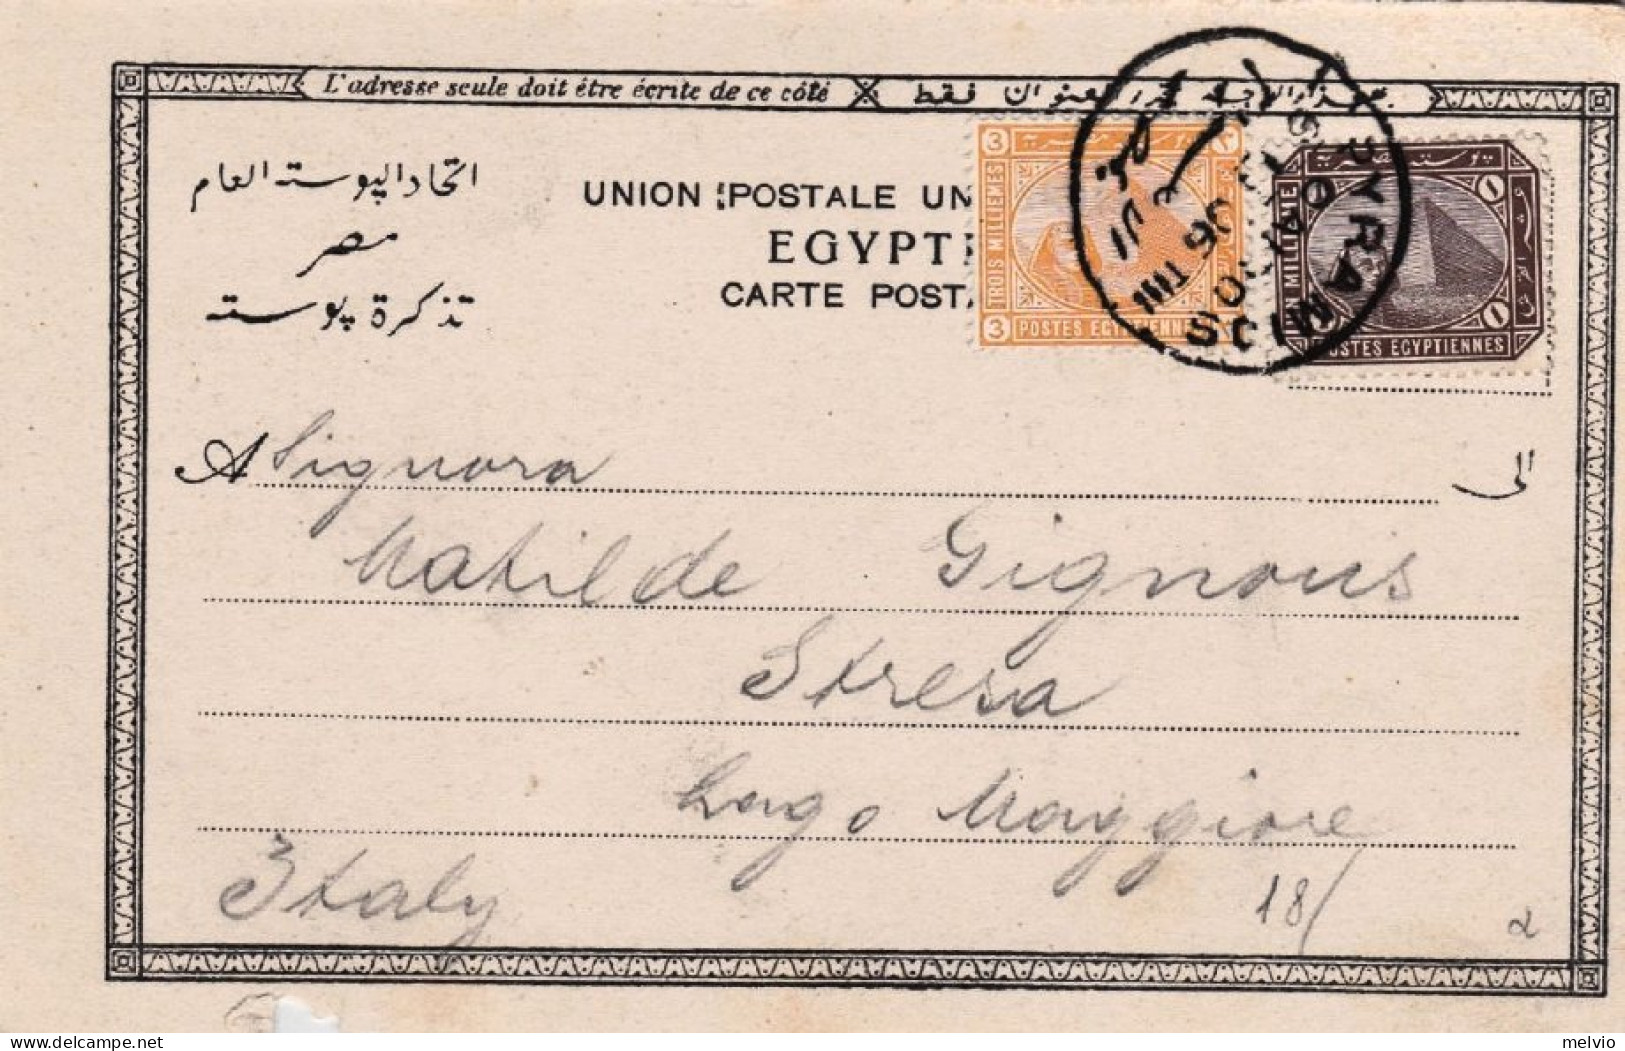 L'adresse seule doit être écrite de ce côté
فقط
اتحاد البوسته العام
مصر
تذكرة بوسته
UNION POSTALE UN
EGYPT
CARTE POST
3
TROIS MILLIEMES
3
POSTES EGYPTIENNES
UN MILLIEME
POSTES EGYPTIENNES
PYRAMIDS
A Signora
الى
Matilde Gignous
Stresa
Lago Maggiore
Italy
18/
α
melvio